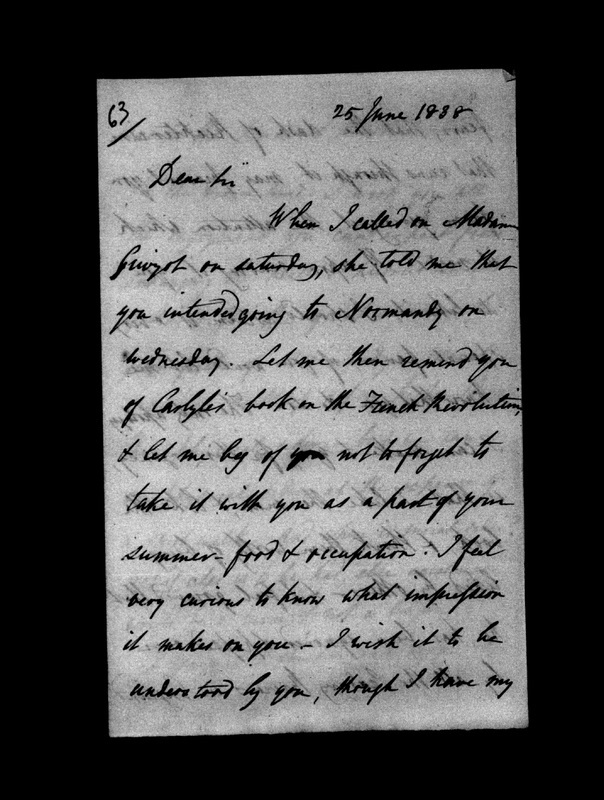 63
25 June 1838
Dear Sir
When I called on Madame
Guizot on saturday, she told me that
you intended going to Normandy on
wednesday. Let me then remind you
of Carlyle's book on the French Revolution,
& let me beg of you not to forget to
take it with you as a part of your
summer-food & occupation. I feel
very curious to know what impression
it makes on you - I wish it to be
understood by you, though I have my